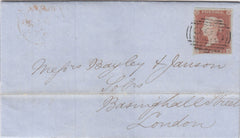 Messrs Bayley & Janson
Solrs
Basinghall Street
London